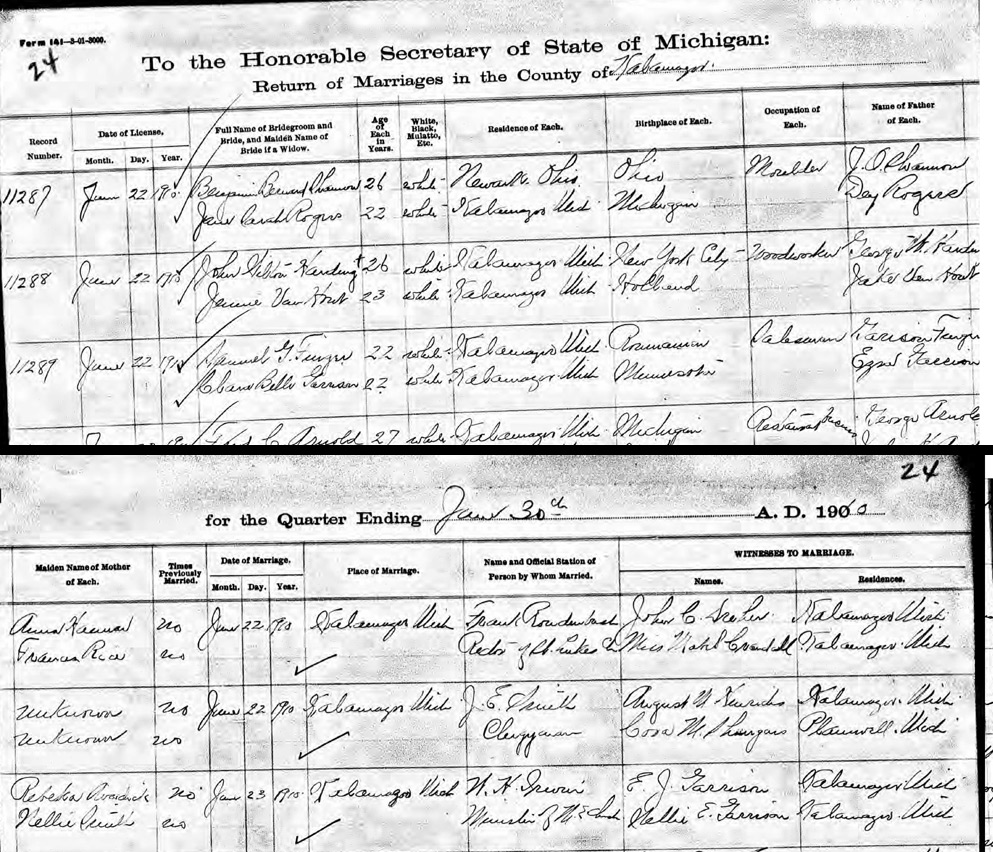 Form 161—3-01-3000.
24
To the Honorable Secretary of State of Michigan:
Return of Marriages in the County of Kalamazoo.
Record Number.
Date of License,
Month. Day. Year.
Full Name of Bridegroom and Bride, and Maiden Name of Bride if a Widow.
Age of Each in Years.
White, Black, Mulatto, Etc.
Residence of Each.
Birthplace of Each.
Occupation of Each.
Name of Father of Each.
11287 June 22 1910 Benjamin Shannon 26 white Newark Ohio Ohio Moulder J. O. Shannon
Jane Sarah Rogers 22 white Kalamazoo Mich Michigan Day Rogers
11288 June 22 1910 John Harding 26 white Kalamazoo Mich New York City Woodworker George
Jennie Van Hout 23 white Kalamazoo Mich Holland Van Hout
11289 June 22 1910 Samuel G. Finger 22 white Kalamazoo Mich Salesman Finger
Belle Garrison 22 white Kalamazoo Mich Minnesota
Fred C Arnold 27 white Kalamazoo Mich Michigan George Arnold
24
for the Quarter Ending June 30th A. D. 1910
Maiden Name of Mother of Each.
Times Previously Married.
Date of Marriage.
Month. Day. Year.
Place of Marriage.
Name and Official Station of Person by Whom Married.
WITNESSES TO MARRIAGE.
Names.
Residences.
Anna no June 22 1910 Kalamazoo Mich Frank John C. Kalamazoo Mich
Frances Rice no Rector of St. Lukes Miss Kalamazoo Mich
unknown no June 22 1910 Kalamazoo Mich J. E. Smith August Kalamazoo Mich
unknown no Clergyman Cora M. Plainwell Mich
no June 23 1910 Kalamazoo Mich W. H. Irwin E. J. Garrison Kalamazoo Mich
Nellie Smith no Minister of M. E. Nellie E. Garrison Kalamazoo Mich